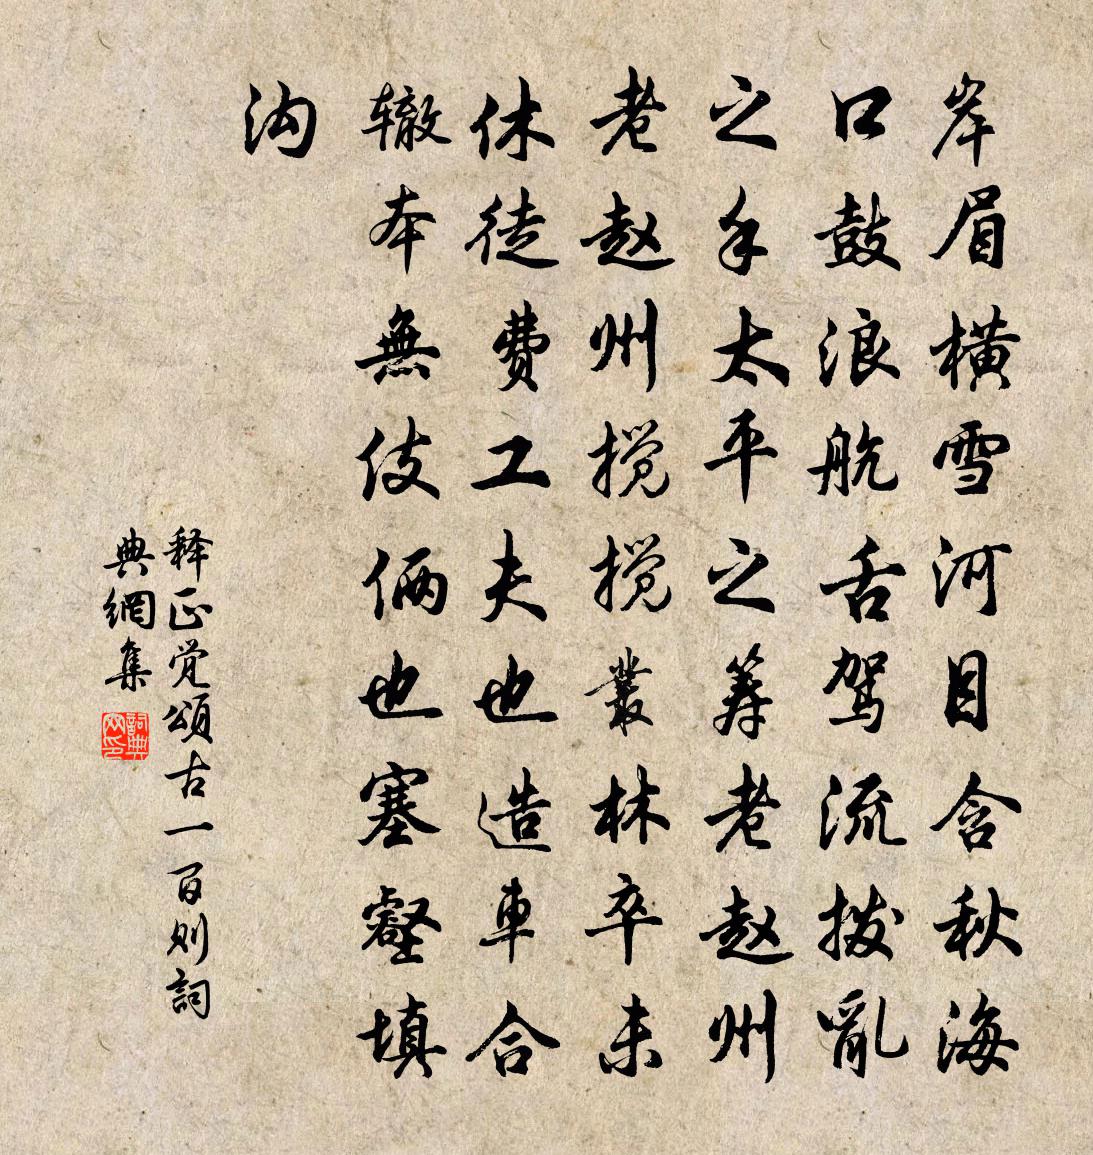 岸眉橫雪河目含秋海
口鼓浪航舌驾流拨亂
之手太平之筹老赵州
老赵州搅搅叢林卒未
休徒費工夫也造車合
辙本無伎俩也塞壑填
沟
释正觉頌古一百则詞
典網集
詞典网印